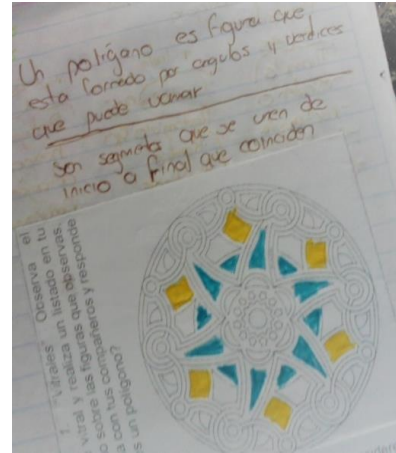 Un polígano es figura que
esta formado por angulos y verdices
que puede variar
son segmentos que se unen de
inicio a final que coinciden
Vitrales. Observa el
vitral y realiza un listado en tu
sobre las figuras que observas
a con tus compañeros y responde
s un polígono?